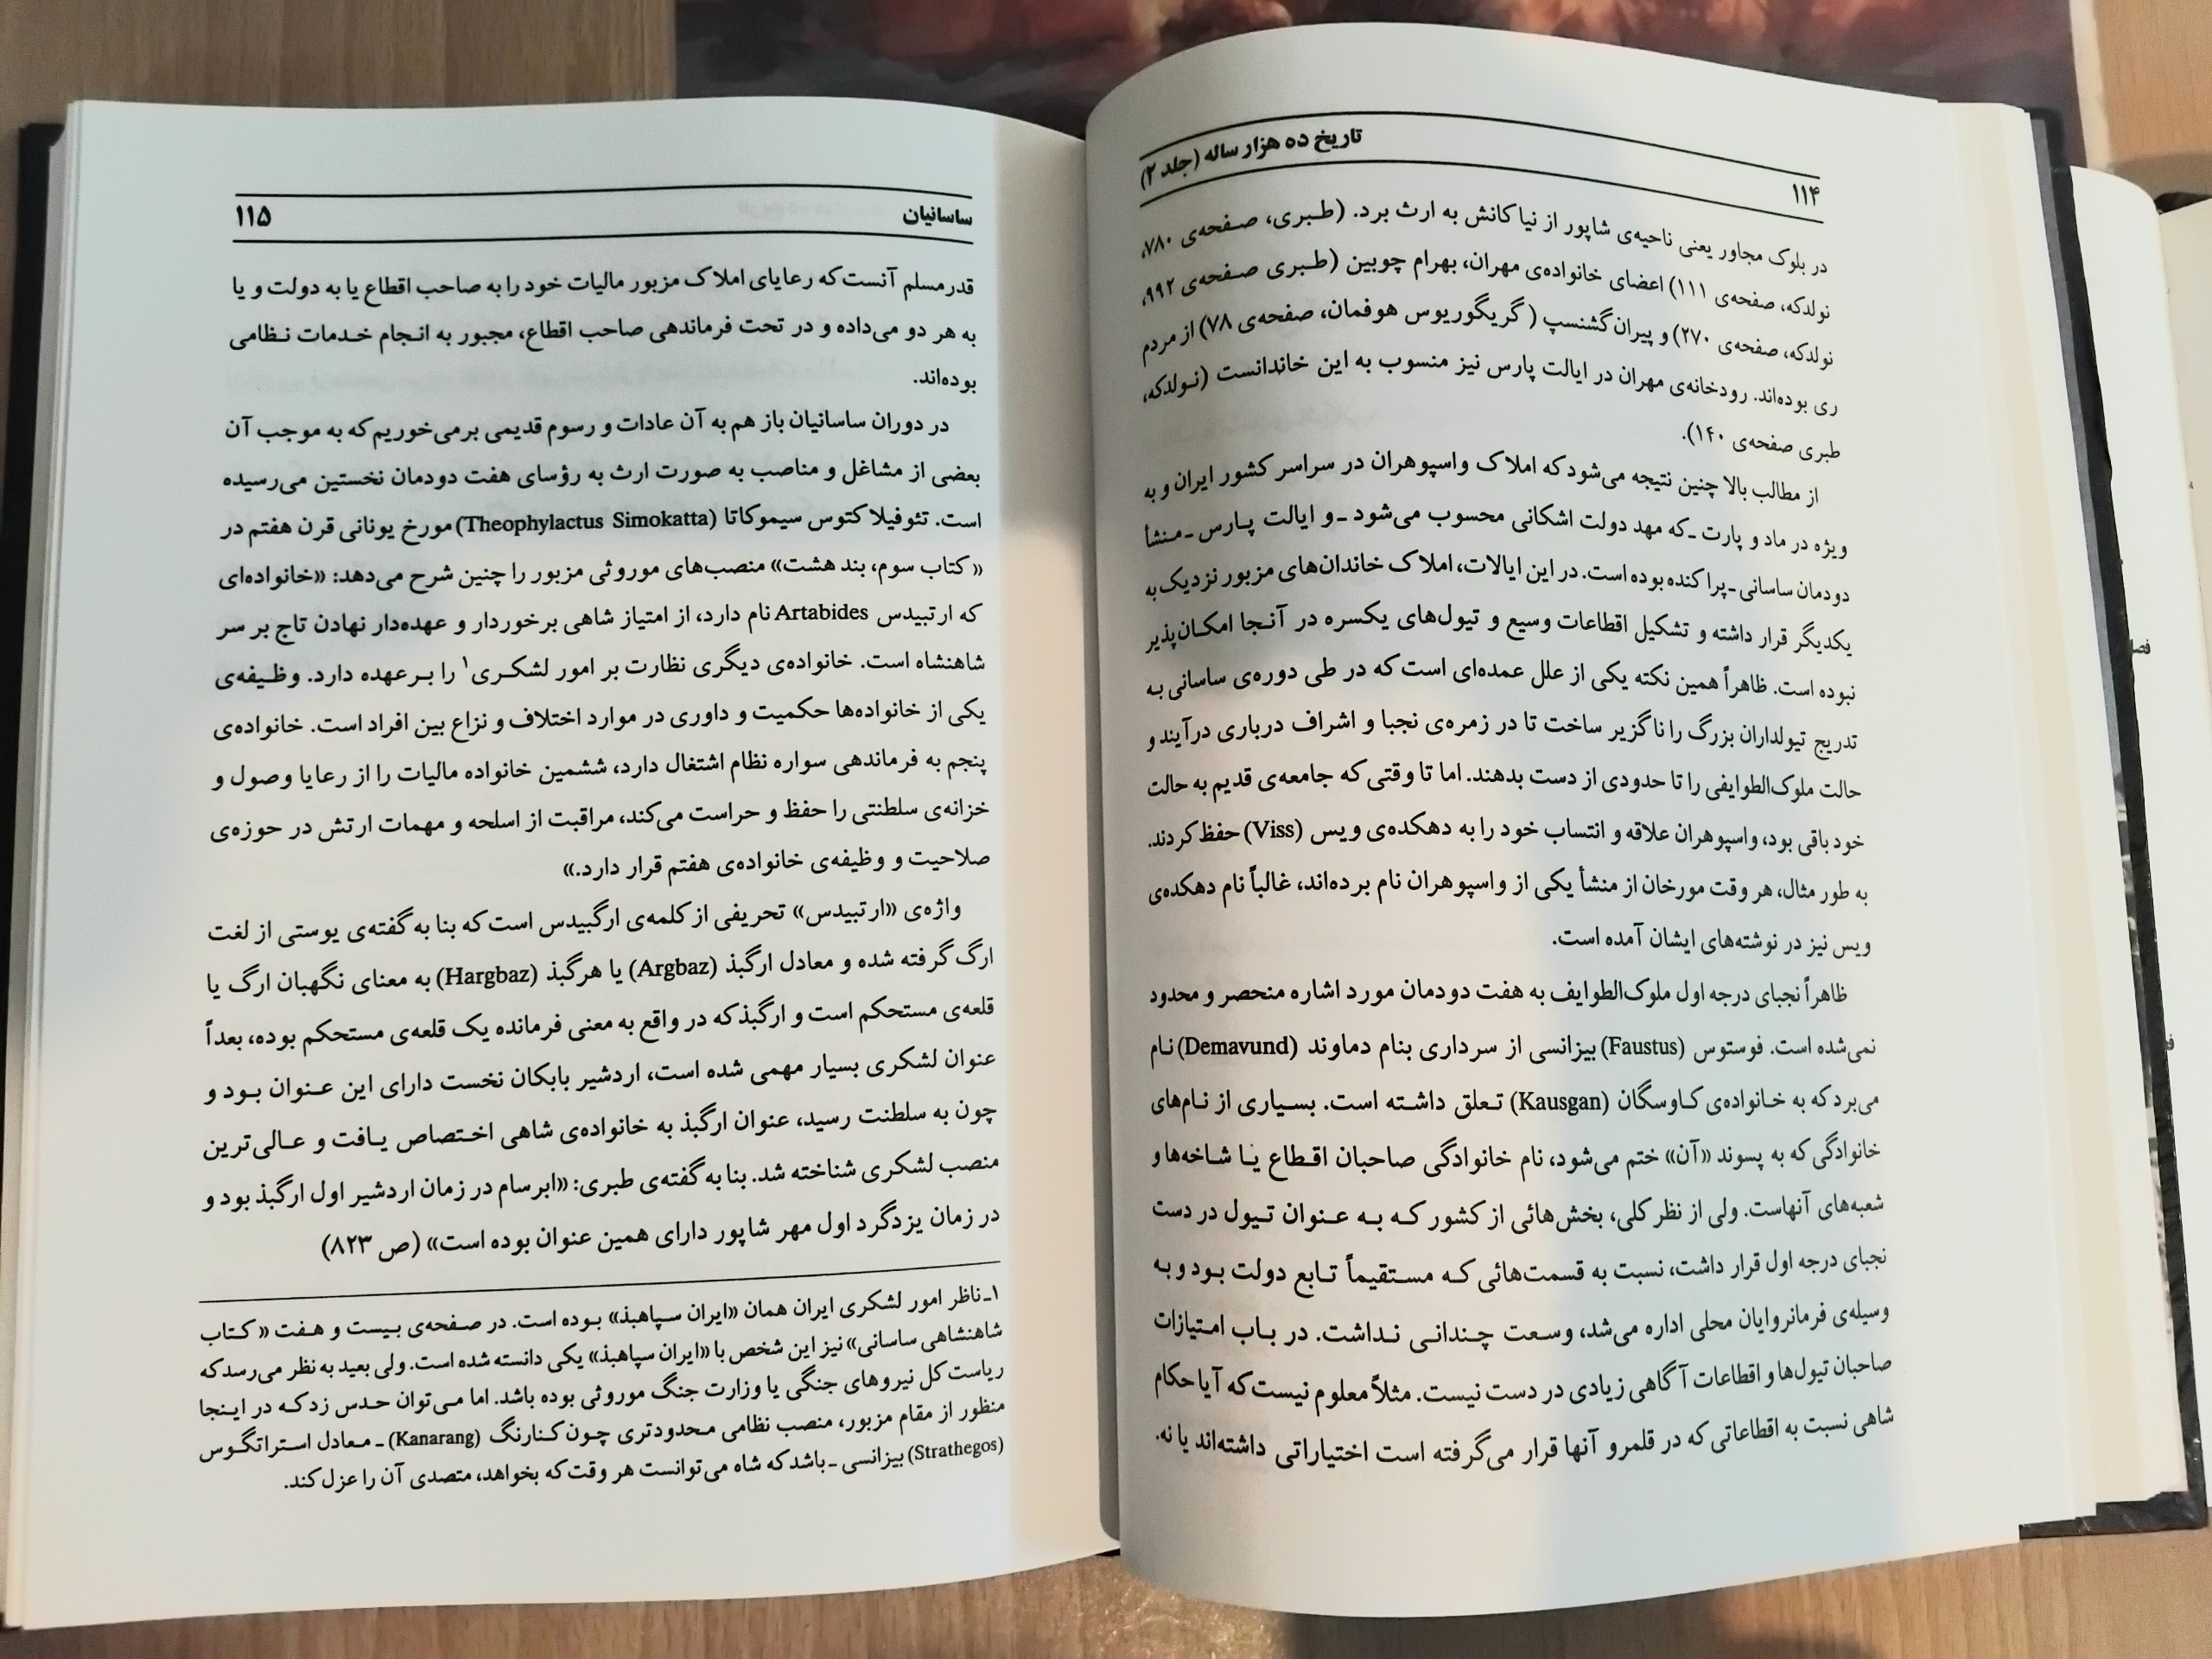 ۱۱۴
تاریخ ده هزار ساله (جلد ۲)
در بلوک مجاور یعنی ناحیه‌ی شاپور از نیاکانش به ارث برد. (طبری، صفحه‌ی ۷۸۰،
نولدکه، صفحه‌ی ۱۱۱) اعضای خانواده‌ی مهران، بهرام چوبین (طبری صفحه‌ی ۹۹۲،
نولدکه، صفحه‌ی ۲۷۰) و پیران‌گشنسپ (گریگوریوس هوفمان، صفحه‌ی ۷۸) از مردم
ری بوده‌اند. رودخانه‌ی مهران در ایالت پارس نیز منسوب به این خاندانست (نولدکه،
طبری صفحه‌ی ۱۴۰).
از مطالب بالا چنین نتیجه می‌شود که املاک واسپوهران در سراسر کشور ایران و به
ویژه در ماد و پارت ـ که مهد دولت اشکانی محسوب می‌شود ـ و ایالت پارس ـ منشأ
دودمان ساسانی ـ پراکنده بوده است. در این ایالات، املاک خاندان‌های مزبور نزدیک به
یکدیگر قرار داشته و تشکیل اقطاعات وسیع و تیول‌های یکسره در آنجا امکان‌پذیر
نبوده است. ظاهراً همین نکته یکی از علل عمده‌ای است که در طی دوره‌ی ساسانی به
تدریج تیولداران بزرگ را ناگزیر ساخت تا در زمره‌ی نجبا و اشراف درباری درآیند و
حالت ملوک‌الطوایفی را تا حدودی از دست بدهند. اما تا وقتی که جامعه‌ی قدیم به حالت
خود باقی بود، واسپوهران علاقه و انتساب خود را به دهکده‌ی ویس (Viss) حفظ کردند.
به طور مثال، هر وقت مورخان از منشأ یکی از واسپوهران نام برده‌اند، غالباً نام دهکده‌ی
ویس نیز در نوشته‌های ایشان آمده است.
ظاهراً نجبای درجه اول ملوک‌الطوایف به هفت دودمان مورد اشاره منحصر و محدود
نمی‌شده است. فوستوس (Faustus) بیزانسی از سرداری بنام دماوند (Demavund) نام
می‌برد که به خانواده‌ی کاوسگان (Kausgan) تعلق داشته است. بسیاری از نام‌های
خانوادگی که به پسوند «آن» ختم می‌شود، نام خانوادگی صاحبان اقطاع یا شاخه‌ها و
شعبه‌های آنهاست. ولی از نظر کلی، بخش‌هائی از کشور که به عنوان تیول در دست
نجبای درجه اول قرار داشت، نسبت به قسمت‌هائی که مستقیماً تابع دولت بود و به
وسیله‌ی فرمانروایان محلی اداره می‌شد، وسعت چندانی نداشت. در باب امتیازات
صاحبان تیول‌ها و اقطاعات آگاهی زیادی در دست نیست. مثلاً معلوم نیست که آیا حکام
شاهی نسبت به اقطاعاتی که در قلمرو آنها قرار می‌گرفته است اختیاراتی داشته‌اند یا نه.
ساسانیان
۱۱۵
قدر مسلم آنست که رعایای املاک مزبور مالیات خود را به صاحب اقطاع یا به دولت و یا
به هر دو می‌داده و در تحت فرماندهی صاحب اقطاع، مجبور به انجام خدمات نظامی
بوده‌اند.
در دوران ساسانیان باز هم به آن عادات و رسوم قدیمی برمی‌خوریم که به موجب آن
بعضی از مشاغل و مناصب به صورت ارث به رؤسای هفت دودمان نخستین می‌رسیده
است. تئوفیلاکتوس سیموکاتا (Theophylactus Simokatta) مورخ یونانی قرن هفتم در
«کتاب سوم، بند هشت» منصب‌های موروثی مزبور را چنین شرح می‌دهد: «خانواده‌ای
که ارتبیدس Artabides نام دارد، از امتیاز شاهی برخوردار و عهده‌دار نهادن تاج بر سر
شاهنشاه است. خانواده‌ی دیگری نظارت بر امور لشکری۱ را برعهده دارد. وظیفه‌ی
یکی از خانواده‌ها حکمیت و داوری در موارد اختلاف و نزاع بین افراد است. خانواده‌ی
پنجم به فرماندهی سواره نظام اشتغال دارد، ششمین خانواده مالیات را از رعایا وصول و
خزانه‌ی سلطنتی را حفظ و حراست می‌کند، مراقبت از اسلحه و مهمات ارتش در حوزه‌ی
صلاحیت و وظیفه‌ی خانواده‌ی هفتم قرار دارد.»
واژه‌ی «ارتبیدس» تحریفی از کلمه‌ی ارگبیدس است که بنا به گفته‌ی یوستی از لغت
ارگ گرفته شده و معادل ارگبذ (Argbaz) یا هرگبذ (Hargbaz) به معنای نگهبان ارگ یا
قلعه‌ی مستحکم است و ارگبذ که در واقع به معنی فرمانده یک قلعه‌ی مستحکم بوده، بعداً
عنوان لشکری بسیار مهمی شده است، اردشیر بابکان نخست دارای این عنوان بود و
چون به سلطنت رسید، عنوان ارگبذ به خانواده‌ی شاهی اختصاص یافت و عالی‌ترین
منصب لشکری شناخته شد. بنا به گفته‌ی طبری: «ابرسام در زمان اردشیر اول ارگبذ بود و
در زمان یزدگرد اول مهر شاپور دارای همین عنوان بوده است» (ص ۸۲۳)
۱ـ ناظر امور لشکری ایران همان «ایران سپاهبذ» بوده است. در صفحه‌ی بیست و هفت «کتاب
شاهنشاهی ساسانی» نیز این شخص با «ایران سپاهبذ» یکی دانسته شده است. ولی بعید به نظر می‌رسد که
ریاست کل نیروهای جنگی یا وزارت جنگ موروثی بوده باشد. اما می‌توان حدس زد که در اینجا
منظور از مقام مزبور، منصب نظامی محدودتری چون کنارنگ (Kanarang) ـ معادل استراتگوس
(Strathegos) بیزانسی ـ باشد که شاه می‌توانست هر وقت که بخواهد، متصدی آن را عزل کند.
فصل